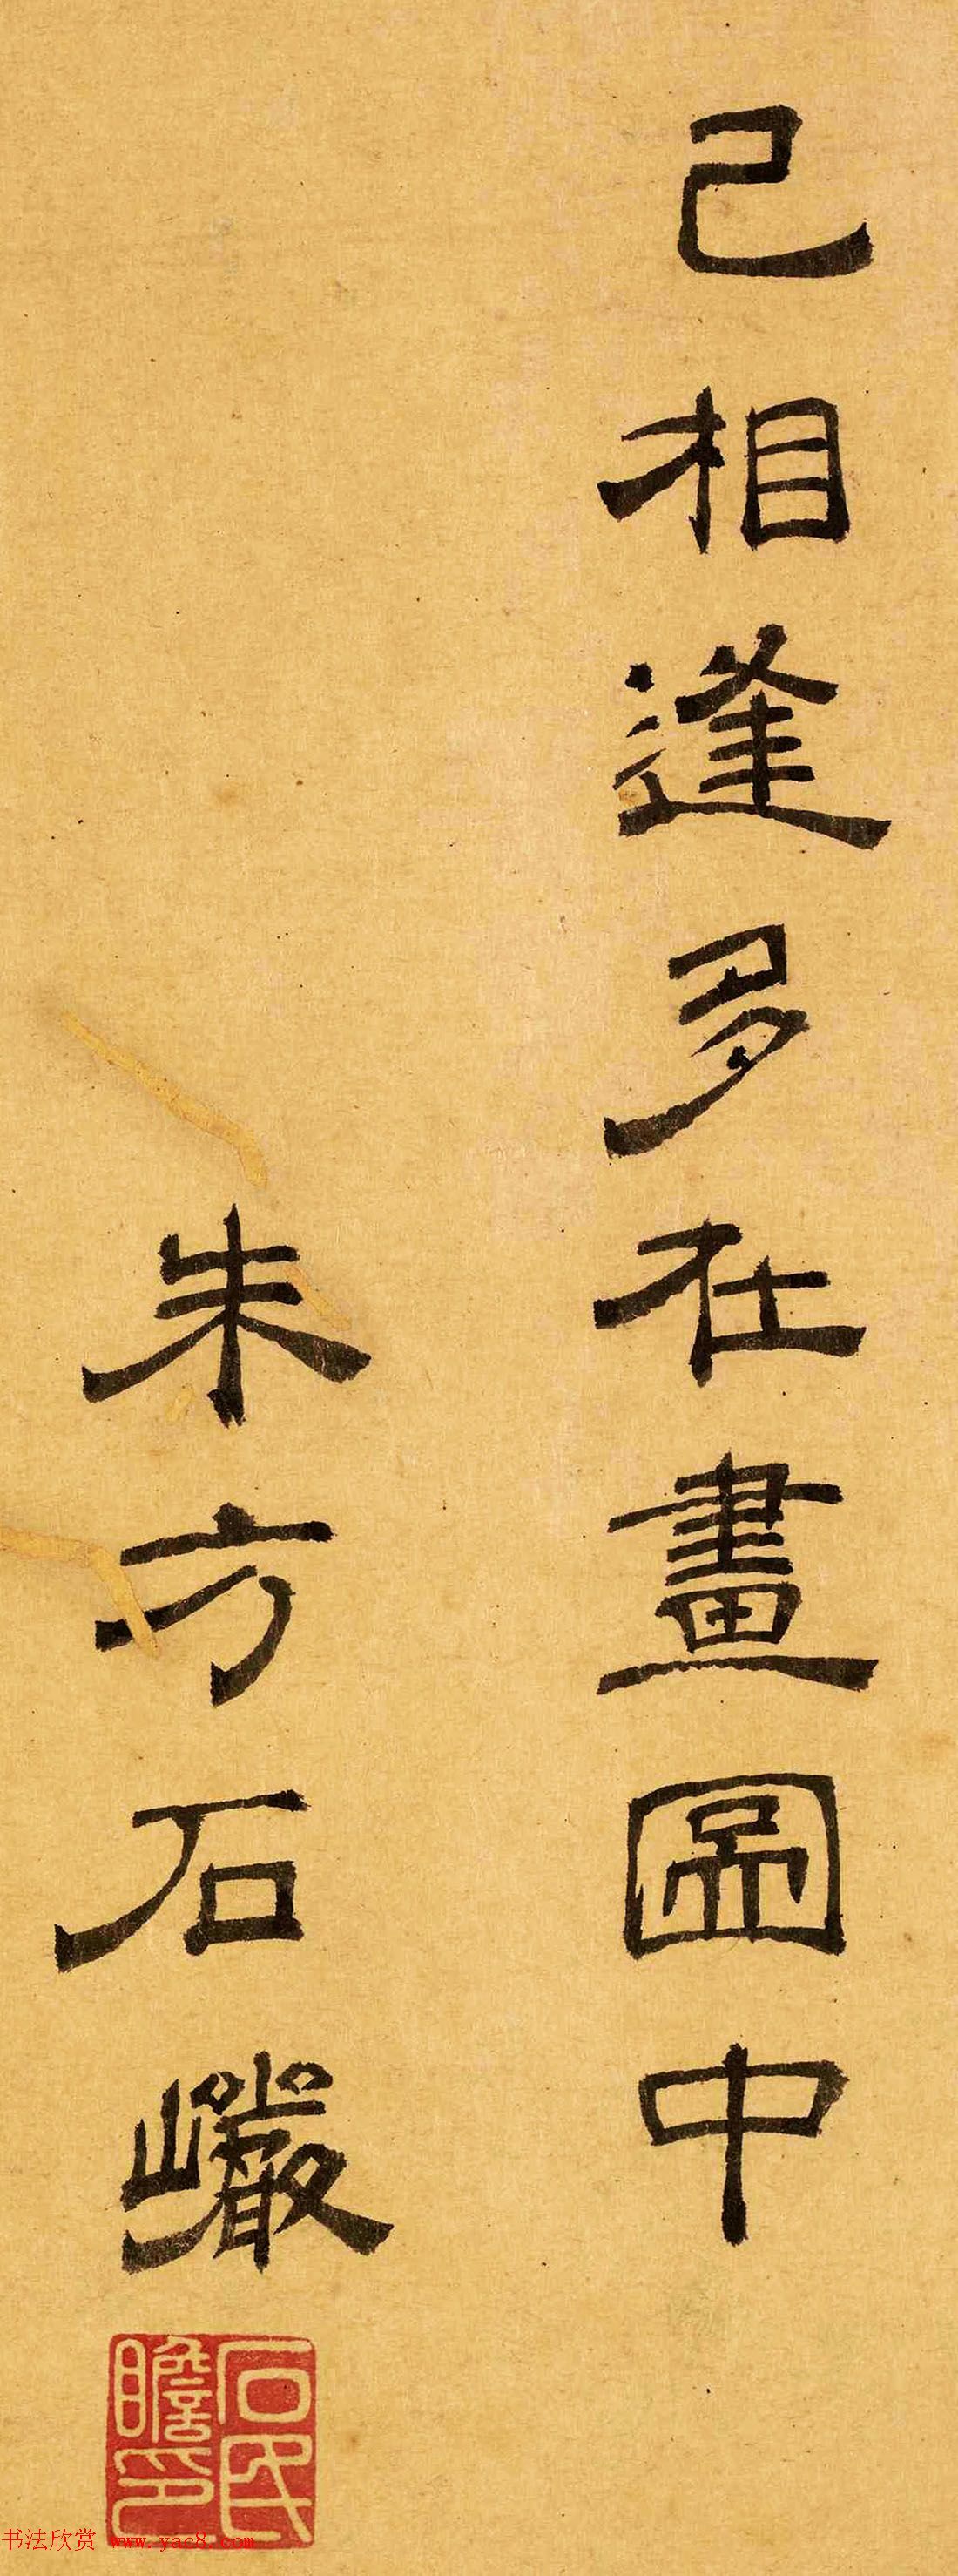 已相逢多在畫圖中
朱方石巖
石氏瞻印
书法欣赏 www.yac8.com